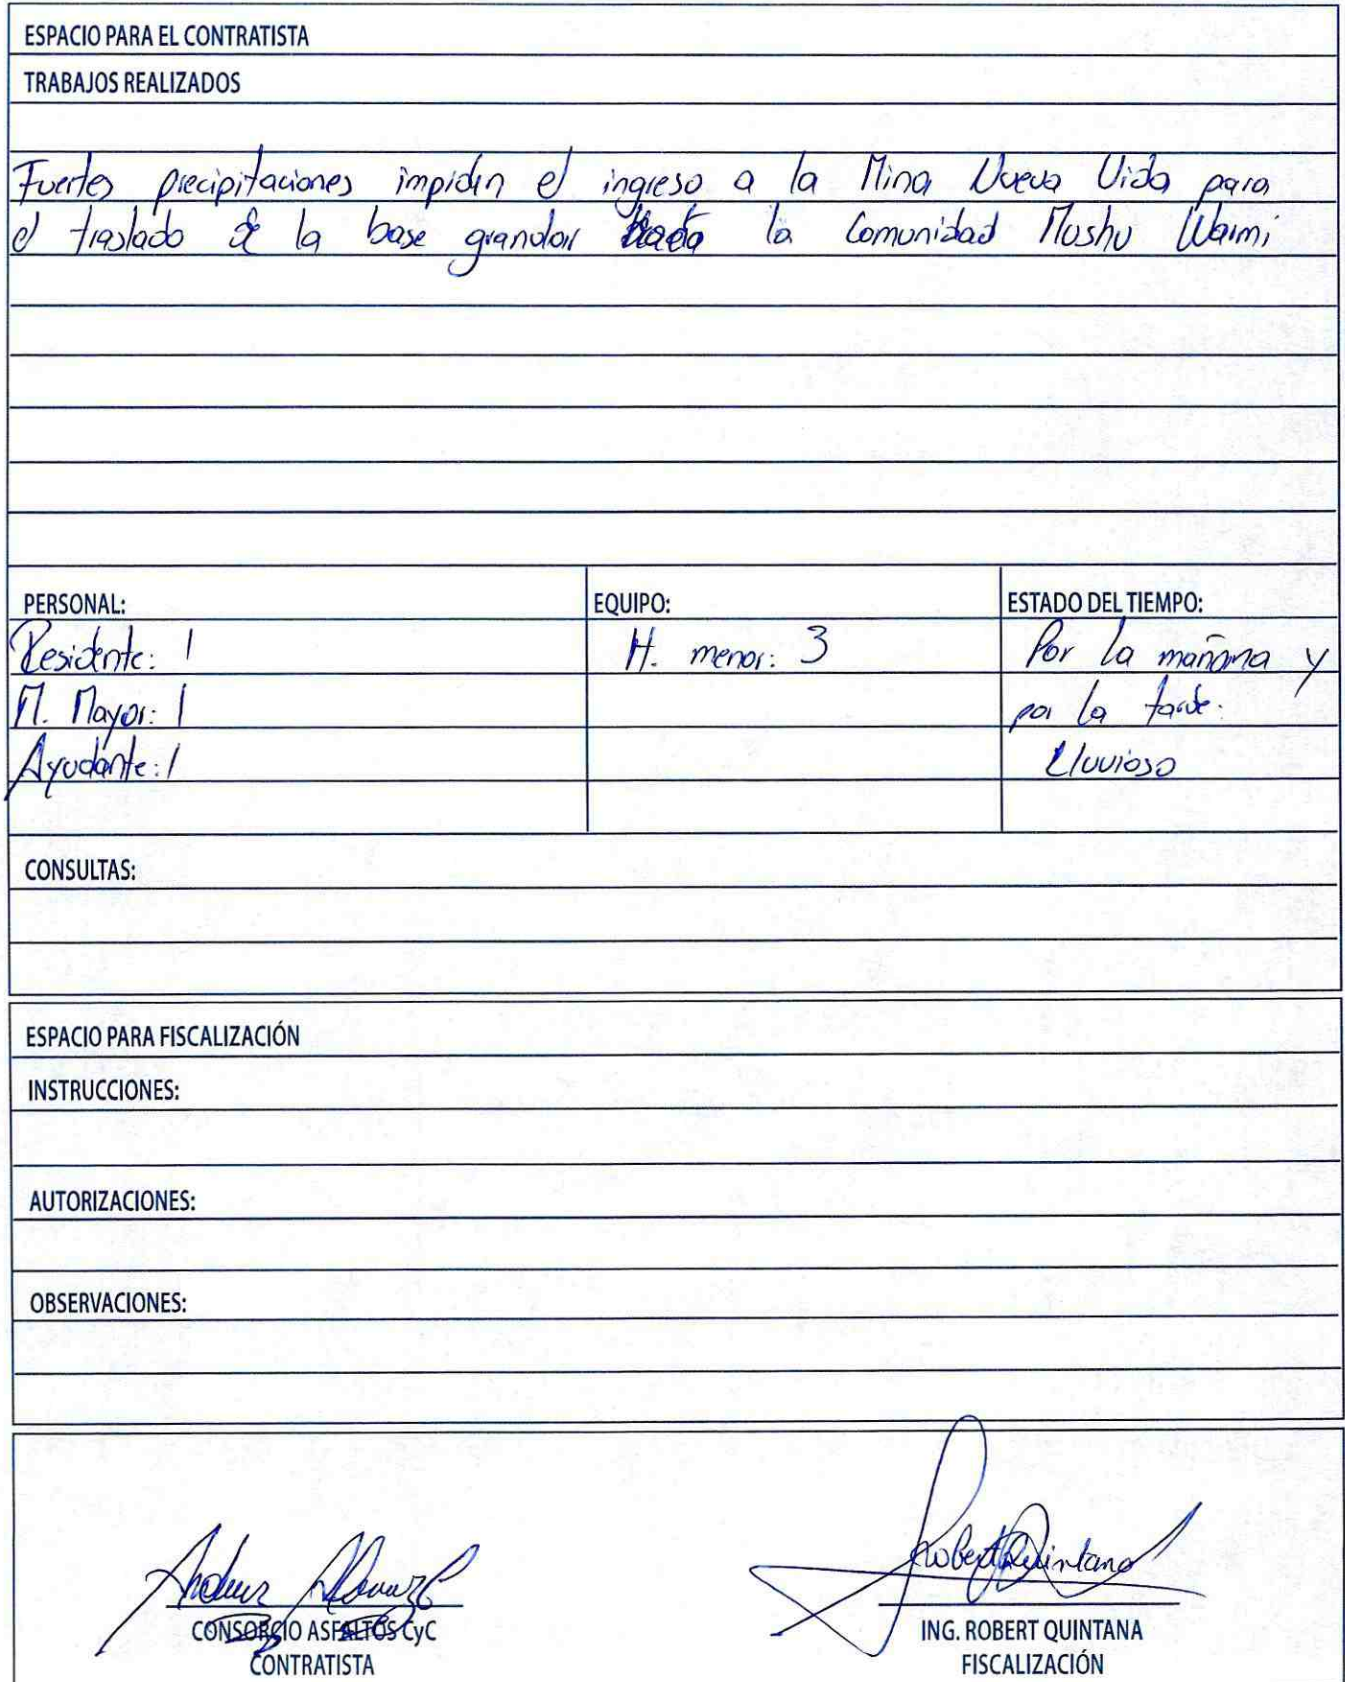 ESPACIO PARA EL CONTRATISTA
TRABAJOS REALIZADOS
Fuertes precipitaciones impiden el ingreso a la Mina Nueva Vida para
el traslado de la base granular hasta la Comunidad Mushu Warmi
PERSONAL: EQUIPO: ESTADO DEL TIEMPO:
Residente: 1 H. menor: 3 Por la mañana y
M. Mayor: 1 por la tarde:
Ayudante: 1 Lluvioso
CONSULTAS:
ESPACIO PARA FISCALIZACIÓN
INSTRUCCIONES:
AUTORIZACIONES:
OBSERVACIONES:
Robert Quintana
CONSORCIO ASFALTOS CyC ING. ROBERT QUINTANA
CONTRATISTA FISCALIZACIÓN